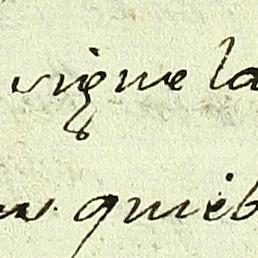 vigne la
quieb